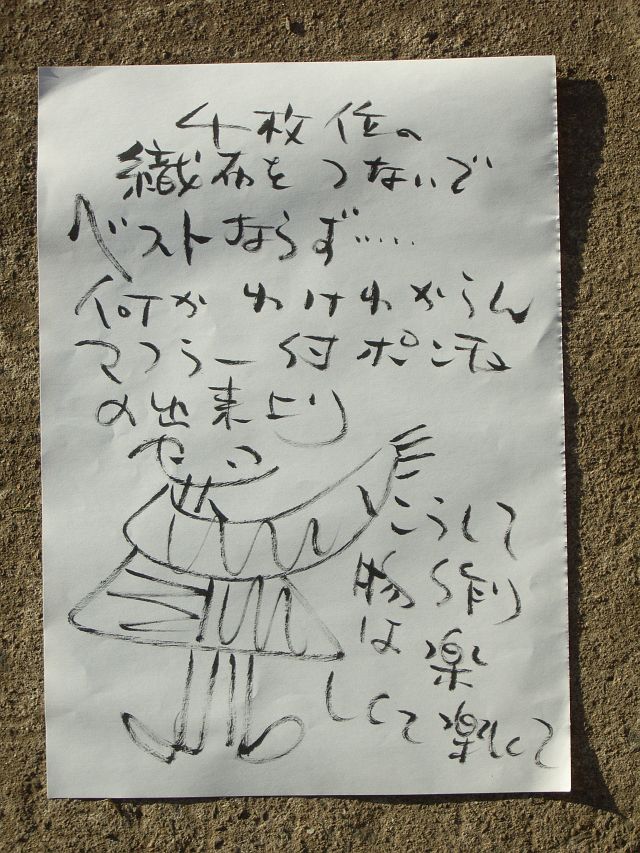 4枚位の
織布をつないで
ベストならず……
何かわけわからん
マフラー付ポンチョ
の出来上り
こうして
物作り
は楽
しくて楽しくて